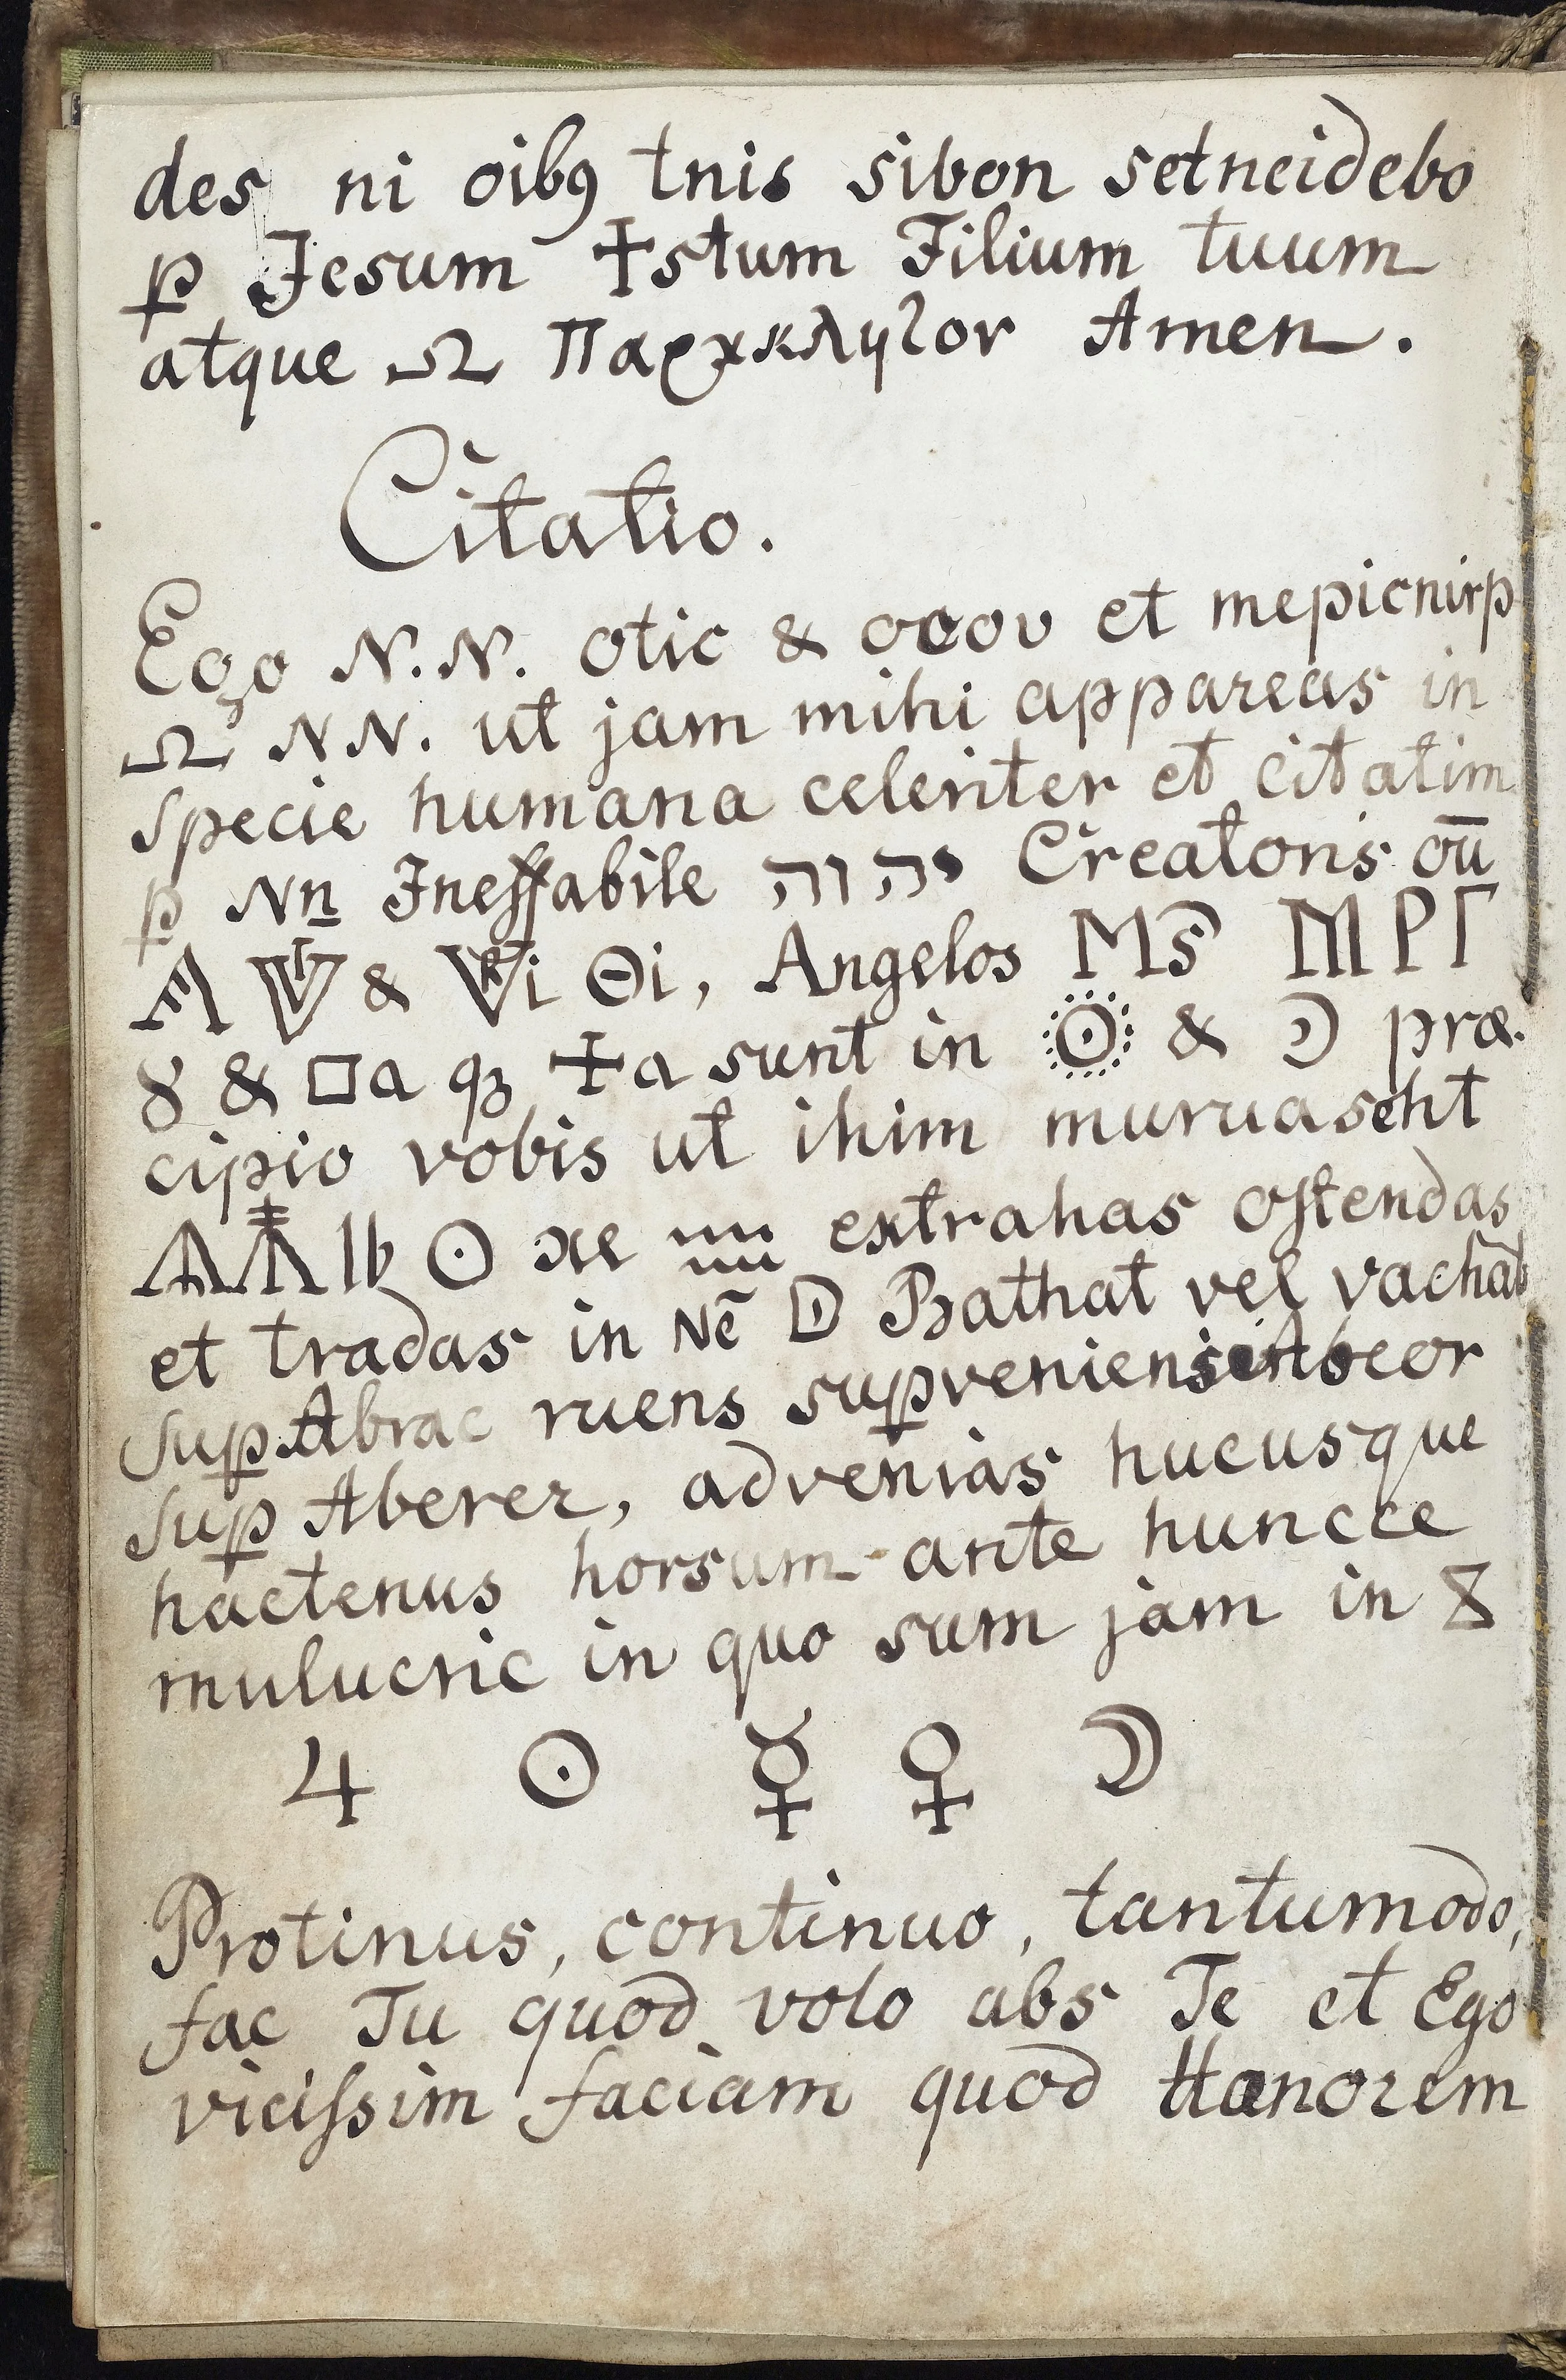 des ni oib9 tnis sibon setneidebo
p Jesum ✝stum Filium tuum
atque Ω Παρακλητον Amen.
Citatio.
Ego N.N. otic & ocov et mepicnirp
Ω N N. ut jam mihi appareas in
specie humana celeriter et citatim
p Nn Ineffabile יהוה Creatoris oū
& Θi, Angelos Ms
8 & □a qȝ ✝a sunt in ☉ & ☽ præ-
cipio vobis ut ihim muruaseht
☉ extrahas ostendas
et tradas in Nē Bathat vel vachat
sup Abrac ruens superveniens Abeor
sup Aberer, advenias hucusque
hactenus horsum ante huncce
mulucric in quo sum jam in
♃ ☉ ☿ ♀ ☽
Protinus, continuo, tantumodo,
fac Tu quod volo abs Te et Ego
vicissim faciam quod Honorem